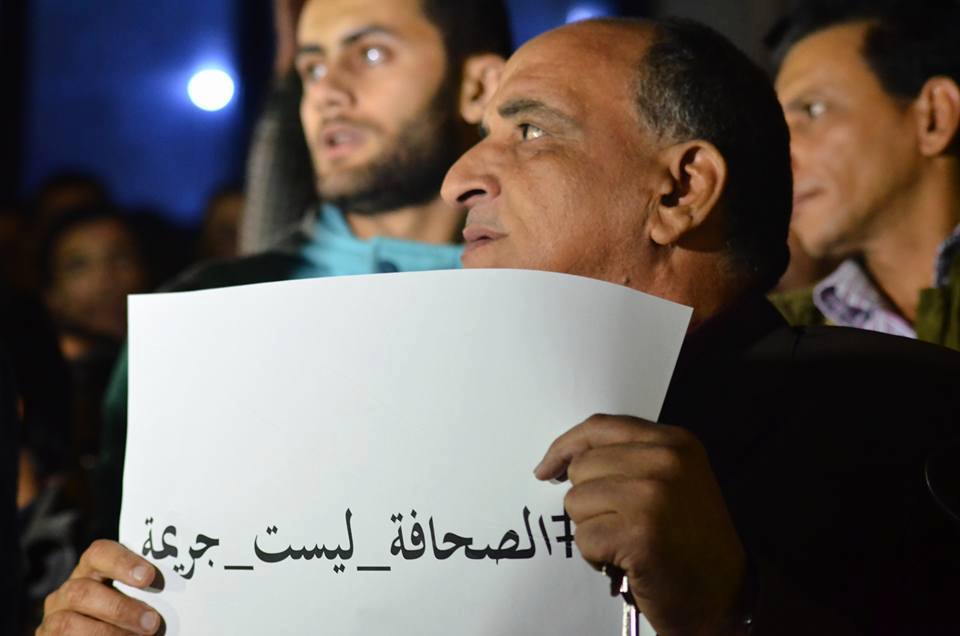 #الصحافة_ليست_جريمة